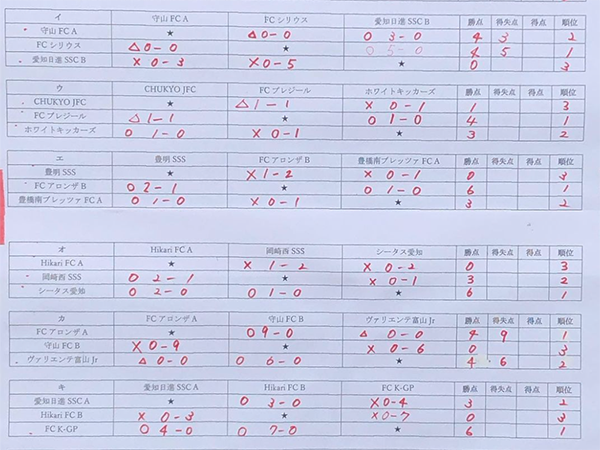 イ 守山 FC A FC シリウス 愛知日進 SSC B 勝点 得失点 得点 順位
守山 FC A ★ △0-0 O 3-0 4 3 2
FC シリウス △0-0 ★ O 5-0 4 5 1
愛知日進 SSC B X 0-3 X0-5 ★ 0 3
ウ CHUKYO JFC FC ブレジール ホワイトキッカーズ 勝点 得失点 得点 順位
CHUKYO JFC ★ △1-1 X 0-1 1 3
FC ブレジール △1-1 ★ O 1-0 4 1
ホワイトキッカーズ O 1-0 X 0-1 ★ 3 2
エ 豊明 SSS FC アロンザ B 豊橋南プレッツァ FC A 勝点 得失点 得点 順位
豊明 SSS ★ X1-2 X 0-1 0 3
FC アロンザ B O2-1 ★ O 1-0 6 1
豊橋南プレッツァ FC A O 1-0 X0-1 ★ 3 2
オ Hikari FC A 岡崎西 SSS シータス愛知 勝点 得失点 得点 順位
Hikari FC A ★ X 1-2 X 0-2 0 3
岡崎西 SSS O 2-1 ★ X0-1 3 2
シータス愛知 O 2-0 O 1-0 ★ 6 1
カ FC アロンザ A 守山 FC B ヴァリエンテ富山 Jr 勝点 得失点 得点 順位
FC アロンザ A ★ O9-0 △ 0-0 4 9 1
守山 FC B X0-9 ★ X 0-6 0 3
ヴァリエンテ富山 Jr △ 0-0 O 6-0 ★ 4 6 2
キ 愛知日進 SSC A Hikari FC B FC K-GP 勝点 得失点 得点 順位
愛知日進 SSC A ★ O 3-0 X0-4 3 2
Hikari FC B X 0-3 ★ X0-7 0 3
FC K-GP O4-0 O 7-0 ★ 6 1